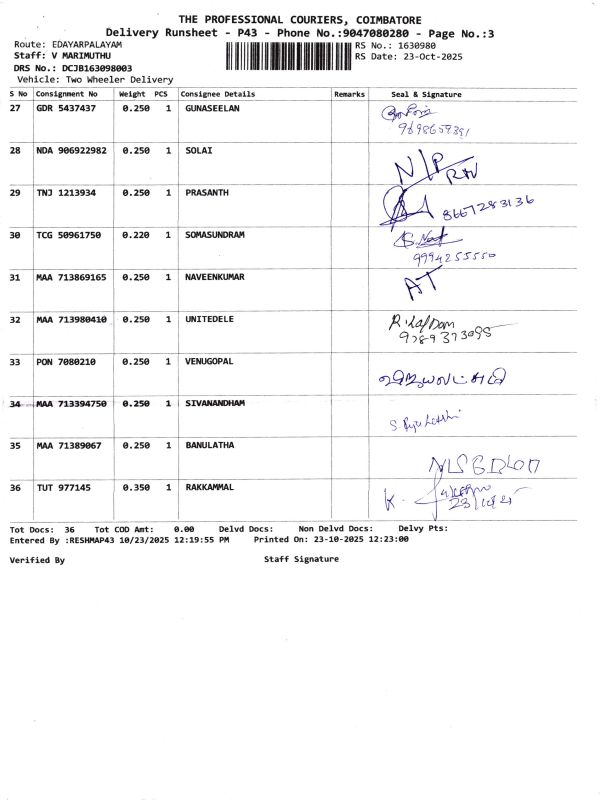 THE PROFESSIONAL COURIERS, COIMBATORE
Delivery Runsheet - P43 - Phone No.:9047080280 - Page No.:3
Route: EDAYARPALAYAM RS No.: 1630980
Staff: V MARIMUTHU RS Date: 23-Oct-2025
DRS No.: DCJB163098003
Vehicle: Two Wheeler Delivery
S No Consignment No Weight PCS Consignee Details Remarks Seal & Signature
27 GDR 5437437 0.250 1 GUNASEELAN
9698659391
28 NDA 906922982 0.250 1 SOLAI N/P
29 TNJ 1213934 0.250 1 PRASANTH 8667283136
30 TCG 50961750 0.220 1 SOMASUNDRAM
9994255550
31 MAA 713869165 0.250 1 NAVEENKUMAR AT
32 MAA 713980410 0.250 1 UNITEDELE
9789373095
33 PON 7080210 0.250 1 VENUGOPAL
34 MAA 713394750 0.250 1 SIVANANDHAM
35 MAA 71389067 0.250 1 BANULATHA
36 TUT 977145 0.350 1 RAKKAMMAL K.
Tot Docs: 36 Tot COD Amt: 0.00 Delvd Docs: Non Delvd Docs: Delvy Pts:
Entered By :RESHMAP43 10/23/2025 12:19:55 PM Printed On: 23-10-2025 12:23:00
Verified By Staff Signature